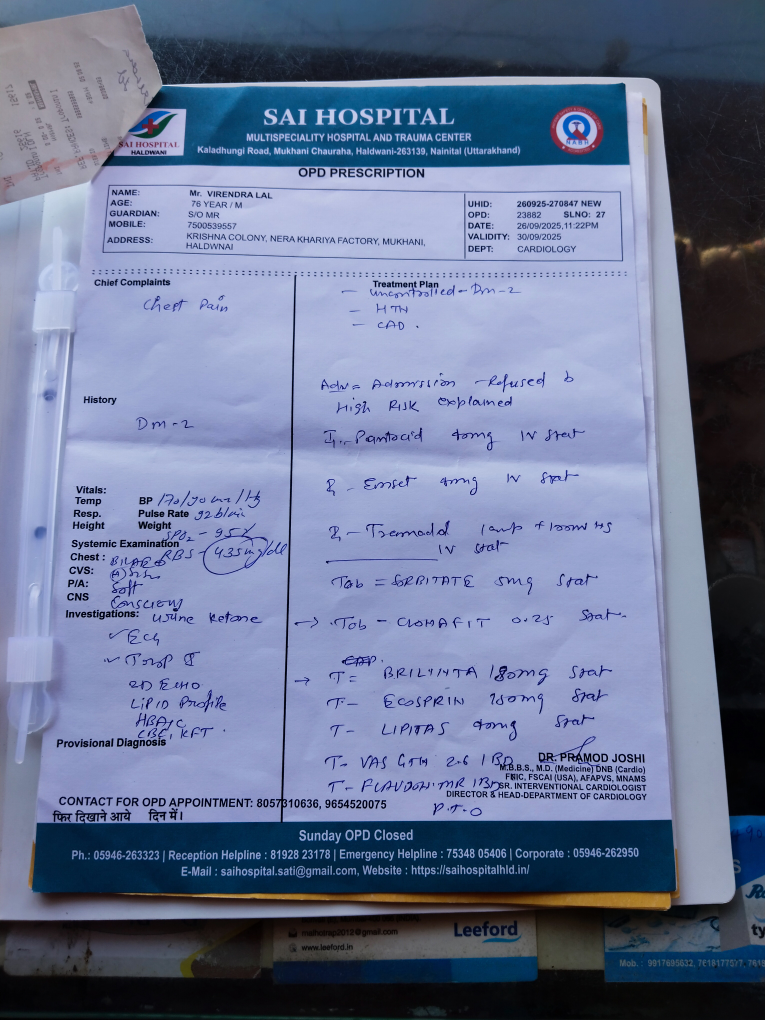 SAI HOSPITAL
MULTISPECIALITY HOSPITAL AND TRAUMA CENTER
Kaladhungi Road, Mukhani Chauraha, Haldwani-263139, Nainital (Uttarakhand)
SAI HOSPITAL
HALDWANI
N.A.B.H
OPD PRESCRIPTION
NAME: Mr. VIRENDRA LAL
AGE: 76 YEAR / M
GUARDIAN: S/O MR
MOBILE: 7500539557
ADDRESS: KRISHNA COLONY, NERA KHARIYA FACTORY, MUKHANI,
HALDWNAI
UHID: 260925-270847 NEW
OPD: 23882 SLNO: 27
DATE: 26/09/2025,11:22PM
VALIDITY: 30/09/2025
DEPT: CARDIOLOGY
Chief Complaints
Chest Pain
History
Dm-2
Vitals:
Temp BP 170/90 mm/Hg
Resp. Pulse Rate 92 b/min
Height Weight
SPO2 - 95%
Systemic Examination
RBS - 435 mg/dl
Chest :
CVS:
P/A: Soft
CNS Conscious
Investigations: Urine Ketone
✓ ECG
✓ Trop I
2D ECHO
LIPID Profile
HBA1C
CBC, KFT.
Provisional Diagnosis
Treatment Plan
- uncontrolled - Dm-2
- HTN
- CAD.
Adv = Admission - Refused
High RISK explained
Pantocid 40mg IV stat
Emset 4mg IV stat
Tramadol 1amp + 100ml NS
IV stat
Tab = SORBITATE 5mg stat
→ Tab - CLONAFIT 0.25 stat.
→ T= BRILINTA 180mg stat
T- ECOSPRIN 150mg stat
T- LIPITAS 40mg stat
T- VAS GTN 2.6 1 BD
T- FLAVDON MR 1 BD
P.T.O
DR. PRAMOD JOSHI
M.B.B.S., M.D. (Medicine) DNB (Cardio)
FNIC, FSCAI (USA), AFAPVS, MNAMS
SR. INTERVENTIONAL CARDIOLOGIST
DIRECTOR & HEAD-DEPARTMENT OF CARDIOLOGY
CONTACT FOR OPD APPOINTMENT: 8057310636, 9654520075
फिर दिखाने आये दिन में।
Sunday OPD Closed
Ph.: 05946-263323 | Reception Helpline : 81928 23178 | Emergency Helpline : 75348 05406 | Corporate : 05946-262950
E-Mail : saihospital.sati@gmail.com, Website : https://saihospitalhld.in/
malhotrap2012@gmail.com
www.leeford.in
Leeford